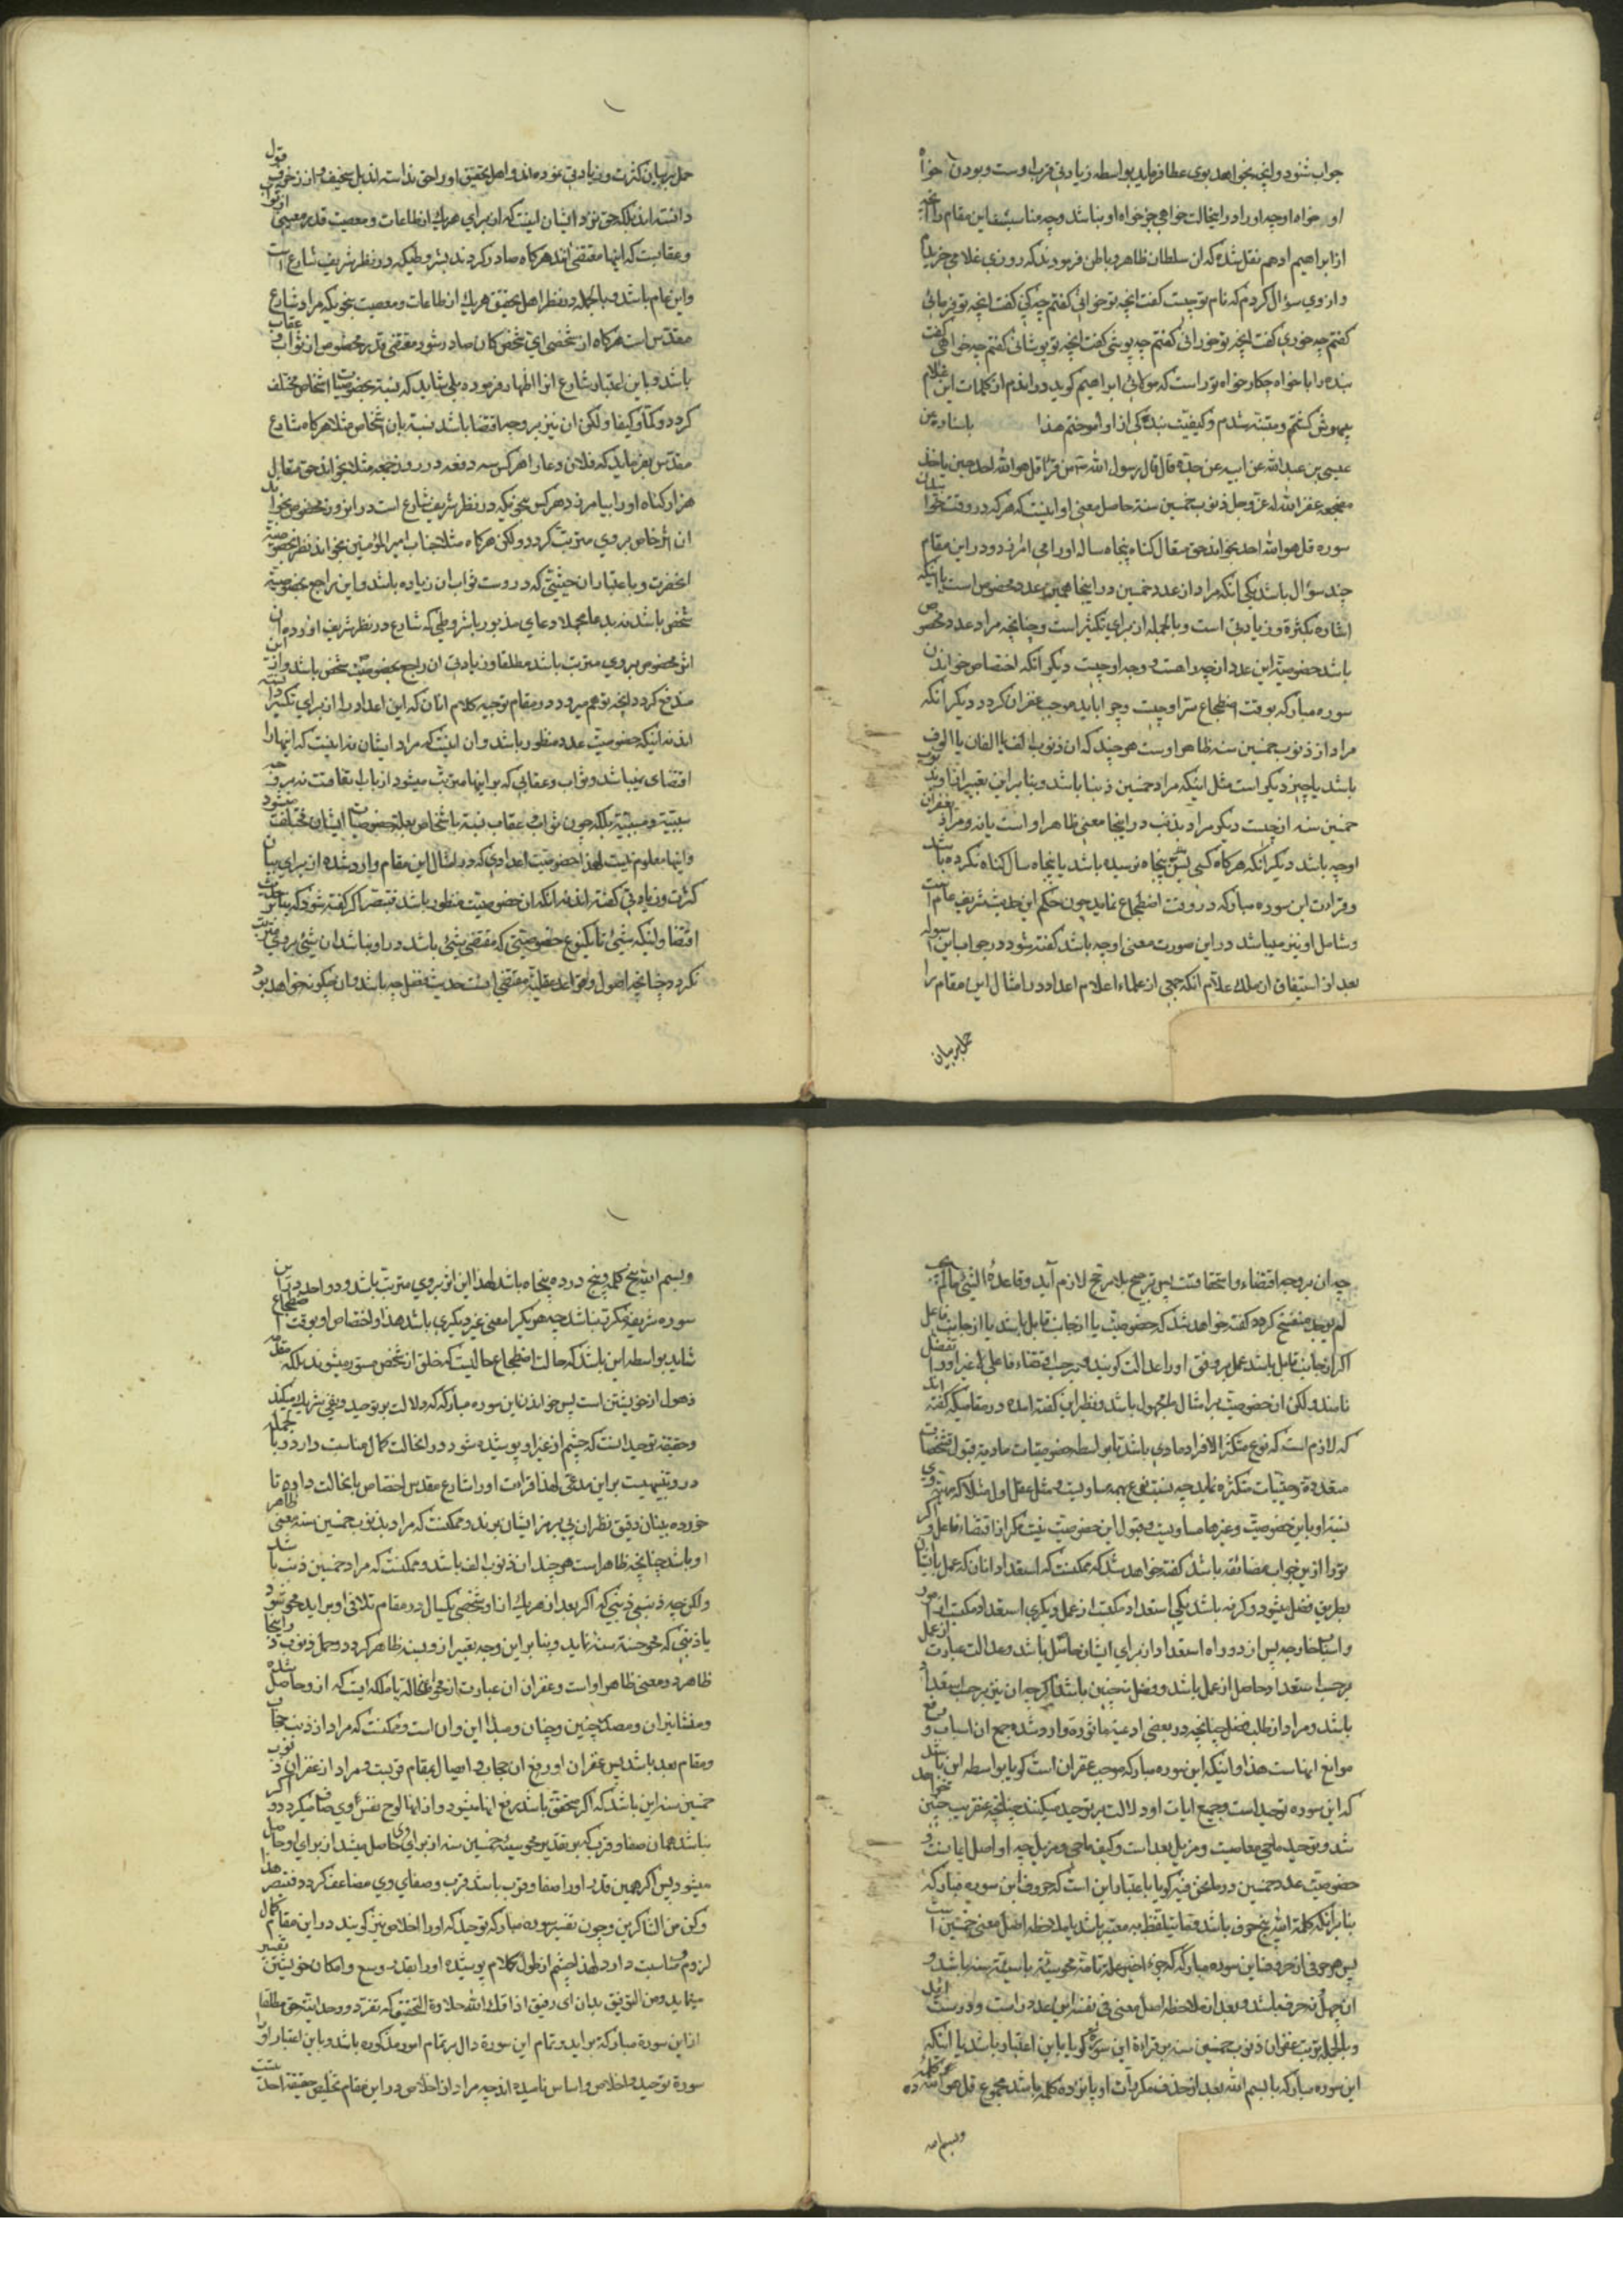 جواب شنود و انچه بخواهد بوی عطا فرماید بواسطه زیادتی قرب اوست و بودن خواه
او خواه او چه او را در اینحالت خواهی جز خواه او نباشد و چه مناسبست این مقام را انچه
از ابراهیم ادهم نقل شده که ان سلطان ظاهر و باطن فرمودند که روزی غلامی خریدم
و از وی سؤال کردم که نام تو چیست گفت انچه تو خوانی گفتم چه کنی گفت انچه تو فرمائی
گفتم چه خوری گفت انچه تو خورانی گفتم چه پوشی گفت انچه تو پوشانی گفتم چه خواهی گفت
بنده را با خواه چکار خواه تو راست که مولائی ابراهیم کوید در اندم از کلمات این غلام
بیهوش کشتم و متنبه شدم و کیفیت بندگی از او اموختم هذا باسناده عن
عیسی بن عبد الله عن ابیه عن جده قال قال رسول الله من قرأ قل هو الله احد حین یاخذ
مضجعه غفر الله له عز و جل ذنوب خمسین سنة حاصل معنی او اینست که هر که در وقت خوابیدن
سوره قل هو الله احد بخواند حق متعال کناه پنجاه ساله او را می امرزد و در این مقام
چند سؤال باشد یکی انکه مراد از عدد خمسین در اینجا همین عدد مخصوص است یا اینکه
اشاره بکثرة و زیادتی است و بالجمله از برای تکثیر است و چنانچه مراد عدد مخصوص
باشد خصوصیة این عدد از چه راهست و وجه او چیست دیکر انکه اختصاص خواندن
سوره مبارکه بوقت اضطجاع سرّ او چیست و چرا باید موجب غفران کردد دیکر انکه
مراد از ذنوب خمسین سنه ظاهر اوست هر چند که ان ذنوب الف یا الفان یا الوف
باشد یا چیز دیکر است مثل اینکه مراد خمسین ذنبا باشد و بنابراین تعبیر از او بذنوب
خمسین سنه از چیست دیکر مراد بذنب در اینجا معنی ظاهر او است یا نه و مراد بغفران
او چه باشد دیکر انکه هر کاه کسی بسن پنجاه نرسیده باشد یا پنجاه سال کناه نکرده باشد
و قراءت این سوره مبارکه در وقت اضطجاع نماید چون حکم این حدیث شریف عام است
و شامل او نیز میباشد در این صورت معنی او چه باشد گفته شود در جواب این اسوله
بعد از استیفاق از ملک علام انکه جمعی از علماء اعلام اعداد در امثال این مقام را
حمل بر بیان
حمل بر بیان کثرت و زیادتی نموده اند و اهل تحقیق او را حق ندانسته اند بل سخیف و از زخرف قول
دانسته اند بلکه حق نزد ایشان اینست که از برای هر یک از طاعات و معصیت قدر معینی از ثواب
و عقابست که اینها مقتضی انند هر کاه صادر کردند بشروطیکه در نظر شریف شارع است
و این عام باشد و بالجمله در نظر اهل تحقیق هر یک از طاعات و معصیت بنحویکه مراد شارع
مقدس است هر کاه از شخصی ای شخص کان صادر شود مقتضی قدر مخصوص از ثواب و عقاب
باشد و باین اعتبار شارع انرا اظهار فرموده بلی شاید که نسبة بخصوصیات اشخاص مختلف
کردد کما و کیفا و لکن ان نیز بر وجه اقتضا باشد نسبة بان اشخاص مثلا هر کاه شارع
مقدس بفرماید که فلان دعا را هر کس سه دفعه در روز جمعه مثلا بخواند حق متعال
هزار کناه او را بیامرزد هر کس بنحویکه در نظر شریف شارع است در انروز مخصوص بخواند
ان اثر خاص بر وی مترتب کردد و لکن هر کاه مثلا جناب امیر المؤمنین بخواند نظر بخصوصیة
انحضرت و باعتبار ان حیثیتی که در وست ثواب ان زیاده باشد و این راجع بخصوصیة
شخص باشد نه بدعا مجملا دعای مذبور باشروطی که شارع در نظر شریف اورده ان
اثر مخصوص بر وی مترتب باشد مطلقا و زیادتی ان راجع بخصوصیت شخص باشد و از این
مندفع کردد انچه توهم میرود در مقام توجیه کلام انان که این اعداد را از برای تکثیر دانسته
اند نه اینکه خصوصیت عدد منظور باشد و ان اینست که مراد ایشان نه اینست که اینها را
اقتضای نمیباشد و ثواب و عقابی که بر اینها مترتب میشود از باب اتفاقست نه بر وجه
سببیة و مسببیة بلکه چون ثواب و عقاب نسبة باشخاص بعلة خصوصیات ایشان مختلف میشود
و اینها معلوم نیست لهذا خصوصیت اعدادی که در امثال این مقام وارد شده از برای بیان
کثرت و زیادتی گفته اند نه انکه ان خصوصیت منظور باشد فتبصر اکر گفته شود که بنا بر حدیث
اقتضا و اینکه شیئ تا یکنوع خصوصیتی که مقتضی شیئ باشد در او نباشد ان شیئ بر وی مترتب
نکردد چنانچه اصول و قواعد عقلیة مقتضی اینست حدیث فضل چه باشد و ان چگونه خواهد بود
چه ان بر وجه اقتضاء و استحقاقست پس ترجیح بلا مرجح لازم آید و قاعدهٔ الشئ مالم یجب
لم یوجد منفسخ کردد گفته خواهد شد که خصوصیت یا از جانب قابل باشد یا از جانب فاعل
اکر از جانب قابل باشد عمل بر وفق او را عدالت کویند و بر حسب اقتضاء فاعلی لا غیر او را تفضل
نامند و لکن ان خصوصیت بر امثال ما مجهول باشد و نظیر این گفته امده در مقامیکه گفته اند
که لازم است که نوع متکثر الافراد مادی باشد تا بواسطه خصوصیات مادیه قبول تشخصات
متعدده و حیثیات متکثره نماید چه نسبت نوع بهمه مساویست و مثل عقل اول مثلا که مرتبه وی
نسبة او باین خصوصیت و غیرها مساویست و قبول این خصوصیت نیست مکر از اقتضاء فاعل و اکر
تو را از این جواب مضائقه باشد گفته خواهد شد که ممکنست که استعداد انان که عمل باایشان
بطریق فضل میشود بر دو کونه باشد یکی استعداد مکتسب از عمل و دیکری استعداد مکتسب از امور
و اسباب خارجه پس از دو راه استعداد از برای ایشان حاصل باشد و عدالت عبارت از عمل
بر حسب استعداد حاصل از عمل باشد و فضل نه چنین باشد اکر چه ان نیز بر حسب استعداد
باشد و مراد از طلب فضل چنانچه در بعضی ادعیه ماثوره وارد شده جمع ان اسباب و رفع
موانع انهاست هذا و اینکه این سوره مبارکه موجب غفران است کویا بواسطه این باشد
که این سوره توحید است و جمیع ایات او دلالت بر توحید میکنند چنانچه عنقریب مبین خواهد
شد و توحید ماحی معاصیت و مزیل بعد است و کیف ماحی و مزیل چه او اصل ایمانست و
خصوصیت عدد خمسین در ما نحن فیه کویا باعتبار این است که حروف این سوره مبارکه
بنا بر انکه کلمه الله پنج حرف باشد و ما یتلفظ به معتبر باشد با ملاحظه اصل معنی خمسین است
پس هر حرفی از حروف این سوره مبارکه که جزء اخیر علة تامة محو سیئة یا سیئة سنه باشد و
ان چهل نه حرف باشد و بعد از ملاحظه اصل معنی فی نفسه این عدد راست و درست اید
و بالجمله ترتب غفران ذنوب خمسین سنه بر قراءة این سوره کویا باین اعتبار باشد یا اینکه
این سوره مبارکه با بسم الله بعد از حذف مکررات او پانزده کلمه باشد مجموع قل هو الله ده کلمه
و بسم الله
و بسم الله پنج کلمه و پنج در ده پنجاه باشد لهذا این اثر بر وی مترتب باشد و دو احد در این
سوره شریفه مکرر نباشد چه هر یکرا معنی غیر دیکری باشد هذا و اختصاص او بوقت اضطجاع
شاید بواسطه این باشد که حالت اضطجاع حالتیست که خلق از شخص مستور میشوند بلکه مقدمه
ذهول از خویشتن است پس خواندن این سوره مبارکه که دلالت بر توحید و نفی شریک میکند
و حقیقة توحید اینست که چشم از غیر او پوشیده شود در انحالت کمال مناسبت دارد و بالجمله
در وی تنبیهیست بر این مدعی لهذا قراءت او را شارع مقدس اختصاص بانحالت داده تا
خورده بینان دقیق نظر ان پی بر سر ایشان برند و ممکنست که مراد بذنوب خمسین سنه معنی ظاهر
او باشد چنانچه ظاهر است هر چند ان ذنوب الف باشد و ممکنست که مراد خمسین ذنب باشد
و لکن چه ذنبی ذنبی که اکر بعد از هر یک ان او شخص یکسال در مقام تلافی او براید محو شود
یا ذنبی که محو حسنة سنة نماید و بنا بر این وجه تعبیر از وی بسنه ظاهر کردد و حمل ذنوب در اینجا
ظاهر و معنی ظاهر او است و غفران ان عبارت از محو انحاله یا ملکه ایست که از و حاصل شده
و منشا نیران و مصداق چنین و چنان و مبدا این و ان است و ممکنست که مراد از ذنب حجاب
و مقام بعد باشد پس غفران او رفع ان حجاب و ایصال بمقام قربست و مراد از غفران ذنوب
خمسین سنه این باشد که اکر متحقق باشد رفع انها میشود و از انها لوح نفس وی صاف میکردد و اکر
نباشد همان صفا و قرب که بر تقدیر محو سیئة خمسین سنه از برای وی حاصل میشد از برای او حاصل
میشود پس اکر همین قدر او را صفا و قرب باشد قرب و صفای وی مضاعف کردد فتبصر هذا
و کن من الشاکرین و چون تفسیر سوره مبارکه توحید که او را اخلاص نیز کویند در این مقام کمال
لزوم و مناسبت دارد لهذا چشم از طول کلام پوشیده او را بقدر وسع و امکان خویشتن تفسیر
مینماید و من الله التوفیق بدان ای رفیق اذاقک الله حلاوة التحقیق که تفرد و وحدانیة حق مطلقا
از این سورة مبارکه براید و تمام این سورة دال بر تمام امور مذکوره باشد و باین اعتبار او را
سورة توحید و اخلاص و اساس نامیده اند چه مراد از اخلاص در این مقام تخلیص حقیقة احدیتست